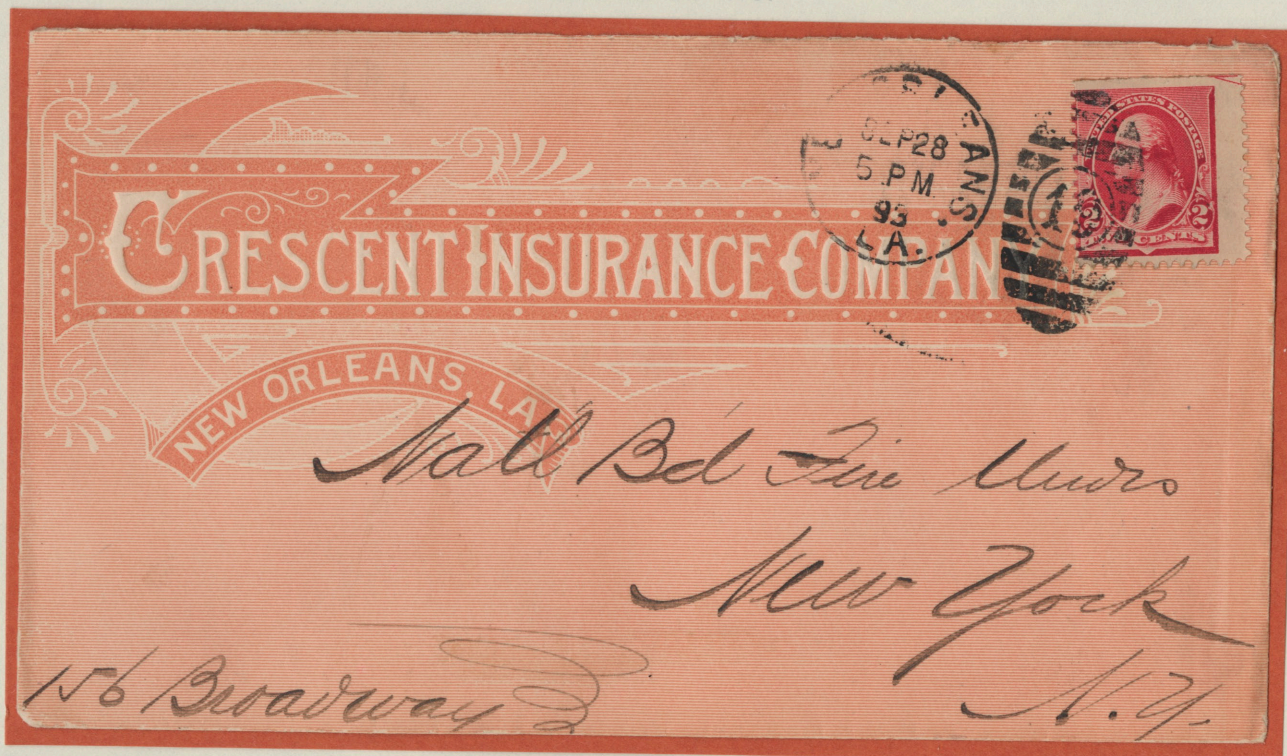 CRESCENT INSURANCE COMPAN
NEW ORLEANS, LA.
ORLEANS
SEP 28
5 PM
93
LA.
UNITED STATES POSTAGE
2 2
CENTS
Natl Bd Fire Undrs
New York
N.Y.
156 Broadway